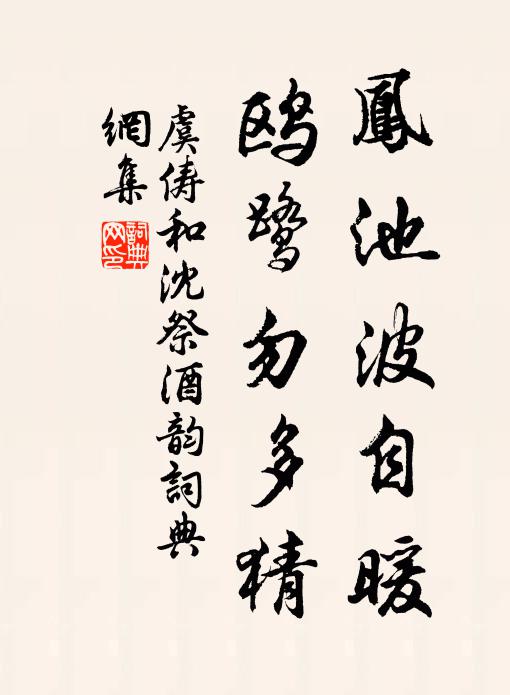 鳳池波自暖
鸥鹭勿多猜
虞俦和沈祭酒韵詞典
網集
詞典
网印